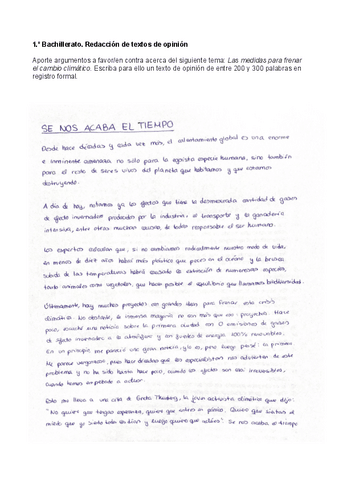 1.º Bachillerato. Redacción de textos de opinión
Aporte argumentos a favor/en contra acerca del siguiente tema: Las medidas para frenar
el cambio climático. Escriba para ello un texto de opinión de entre 200 y 300 palabras en
registro formal.
SE NOS ACABA EL TIEMPO
Desde hace décadas y cada vez más, el calentamiento global es una enorme
e inminente amenaza no sólo para la egoísta especie humana, sino también
para el resto de seres vivos del planeta que habitamos y que estamos
destruyendo.
A día de hoy, notamos ya los efectos que tiene la desmesurada cantidad de gases
de efecto invernadero producidos por la industria, el transporte y la ganadería
intensiva, entre otras muchas causas, de todas responsable el ser humano.
Los expertos calculan que, si no cambiamos radicalmente nuestro modo de vida,
en menos de diez años habrá más plástico que peces en el océano y la brusca
subida de las temperaturas habrá causado la extinción de numerosas especies,
tanto animales como vegetales, que hacen posible el equilibrio que llamamos biodiversidad.
Últimamente, hay muchos proyectos con grandes ideas para frenar esta crisis
climática. No obstante, la inmensa mayoría no son más que eso: proyectos. Hace
poco, escuché una noticia sobre la primera ciudad con 0 emisiones de gases
de efecto invernadero a la atmósfera y con fuentes de energía 100% renovables.
En un principio me pareció una gran noticia, pero luego pensé: ¿la primera?
Me parece vergonzoso, pues hace décadas que los especialistas nos advierten de este
problema y no ha sido hasta hace poco, cuando los efectos son casi irreversibles,
cuando hemos empezado a actuar.
Esto me lleva a una cita de Greta Thunberg, la joven activista climática que dijo:
"No quiero que tengas esperanza, quiero que entres en pánico. Quiero que sientas el
miedo que yo siento todos los días y luego quiero que actúes". Se nos acaba el tiempo